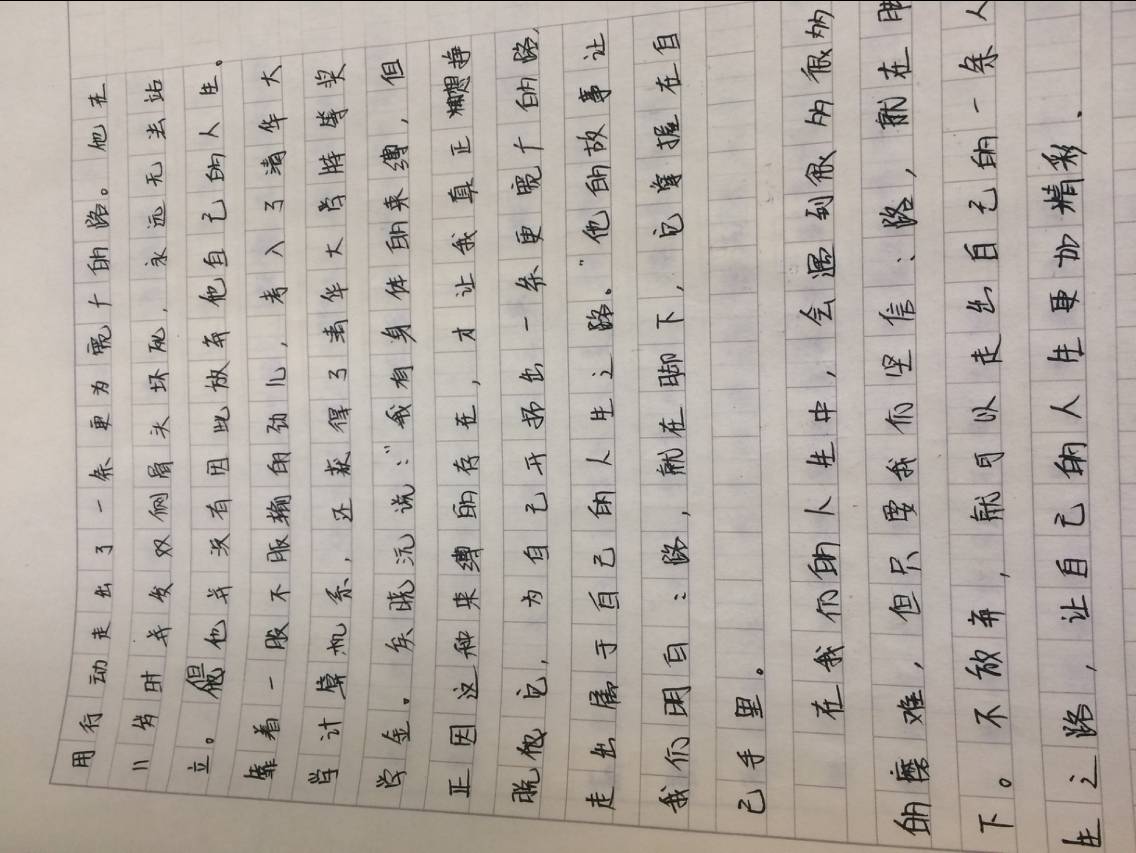 用行动走出了一条更为宽广的路。他在
11岁时并发双侧肩头坏死，永远无法站
立。但他并没有因此放弃他自己的人生。
靠着一股不服输的劲儿，考入了清华大
学计算机系，还获得了清华大学特等奖
学金。矣晓沅说：“我有身体的束缚，但
正因这种束缚的存在，才让我真正想挣
脱他它，为自己开拓出一条更宽广的路，
走出属于自己的人生之路。”他的故事让
我们明白：路，就在脚下，它掌握在自
己手里。
在我们的人生中，会遇到很多很多
的磨难，但只要我们坚信：路，就在脚
下。不放弃，就可以走出自己的一条人
生之路，让自己的人生更加精彩．